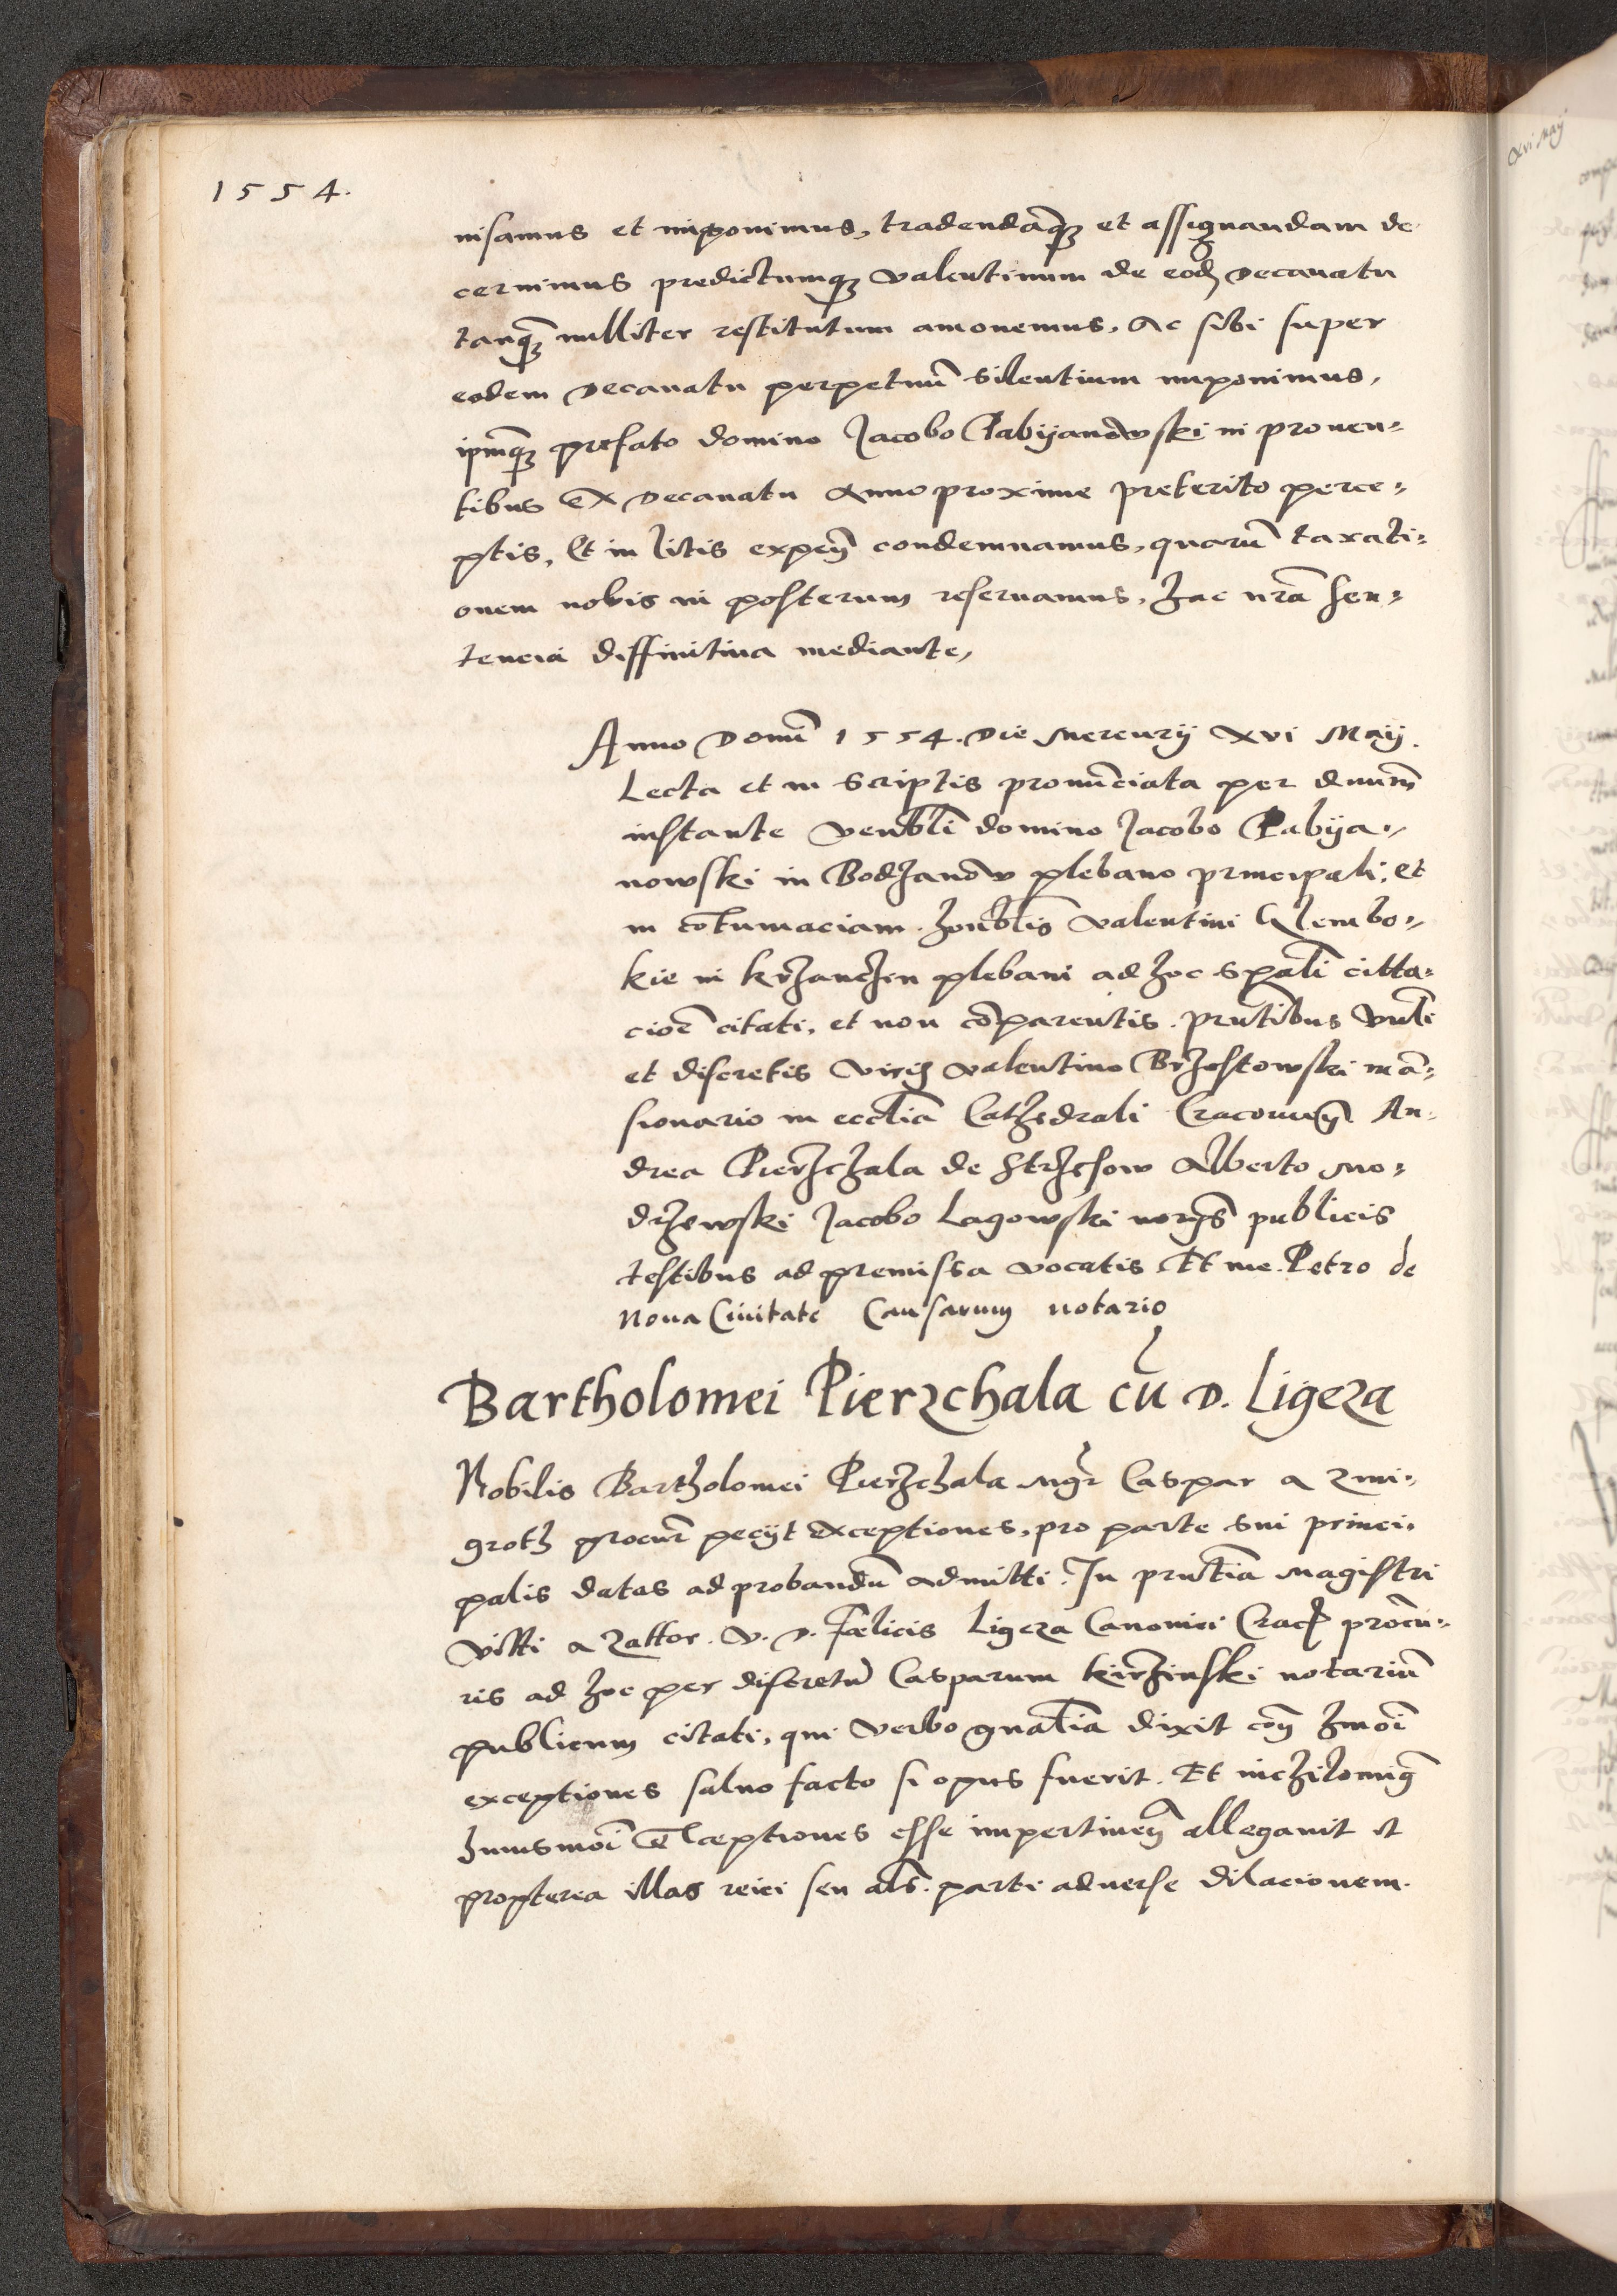 1554.
nisamus et imponimus, tradendãqȝ et assignandam de
cernimus predictumqȝ Valentinum de eodȝ Decanatu
tanqȝ nulliter restitutum amonemus, Ac sibi super
eodem Decanatu perpetuũ silentium imponimus,
ipmqȝ prefato domino Jacobo Pabijanowski in prouen=
tibus Ex Decanatu Anno proxime preterito perce=
ptis, Et in litis expen̄ condemnamus, quarũ taxati=
onem nobis in posterum reseruamus, hac nrã sen=
tencia diffinitiua mediante,
Anno Domĩ 1554. Die Mercurij Xvi Maij.
Lecta et in scriptis pronũciata per dnum̃
instante Venbli domino Jacobo Pabija=
nowski in Bodzanów plebano principali, et
in cõtumaciam honblis Valentini Glembo=
kie in krzanczin plebani ad hoc spali citta=
cioẽ citati, et non cõparentis. prntibus Vnli
et discretis Viris Valentino Brzostowski mã=
sionario in ecclia Cathedrali Cracouien̄ An
drea Pierzchala de Strzesow Alberto Mo=
drzewski Jacobo Lagowski norijs publicis
testibus ad premissa vocatis Et me Petro de
Noua Ciuitate Causarum notario
Bartholomei Pierzchala cũ D. Ligeza
Nobilis Bartholomei Pierzchala Mgr Caspar a Zmi=
groth procur̃ pecijt exceptiones, pro parte sui princi=
palis datas ad probandũ admitti. In prntia Magistri
Vitti a Zattor. V. D. Fœlicis Ligeza Canonici Crac̃ procu=
ris ad hoc per discretũ Casparum kirzinski notariũ
publicum citati, qui verbo gnalia dixit con̄ hmõi
exceptiones saluo facto si opus fuerit. Et nichilomin9
huiusmõi Exceptiones esse impertinen̄ allegauit et
propterea illas reici seu als. parti aduerse dilacionem.
Xvi Maij